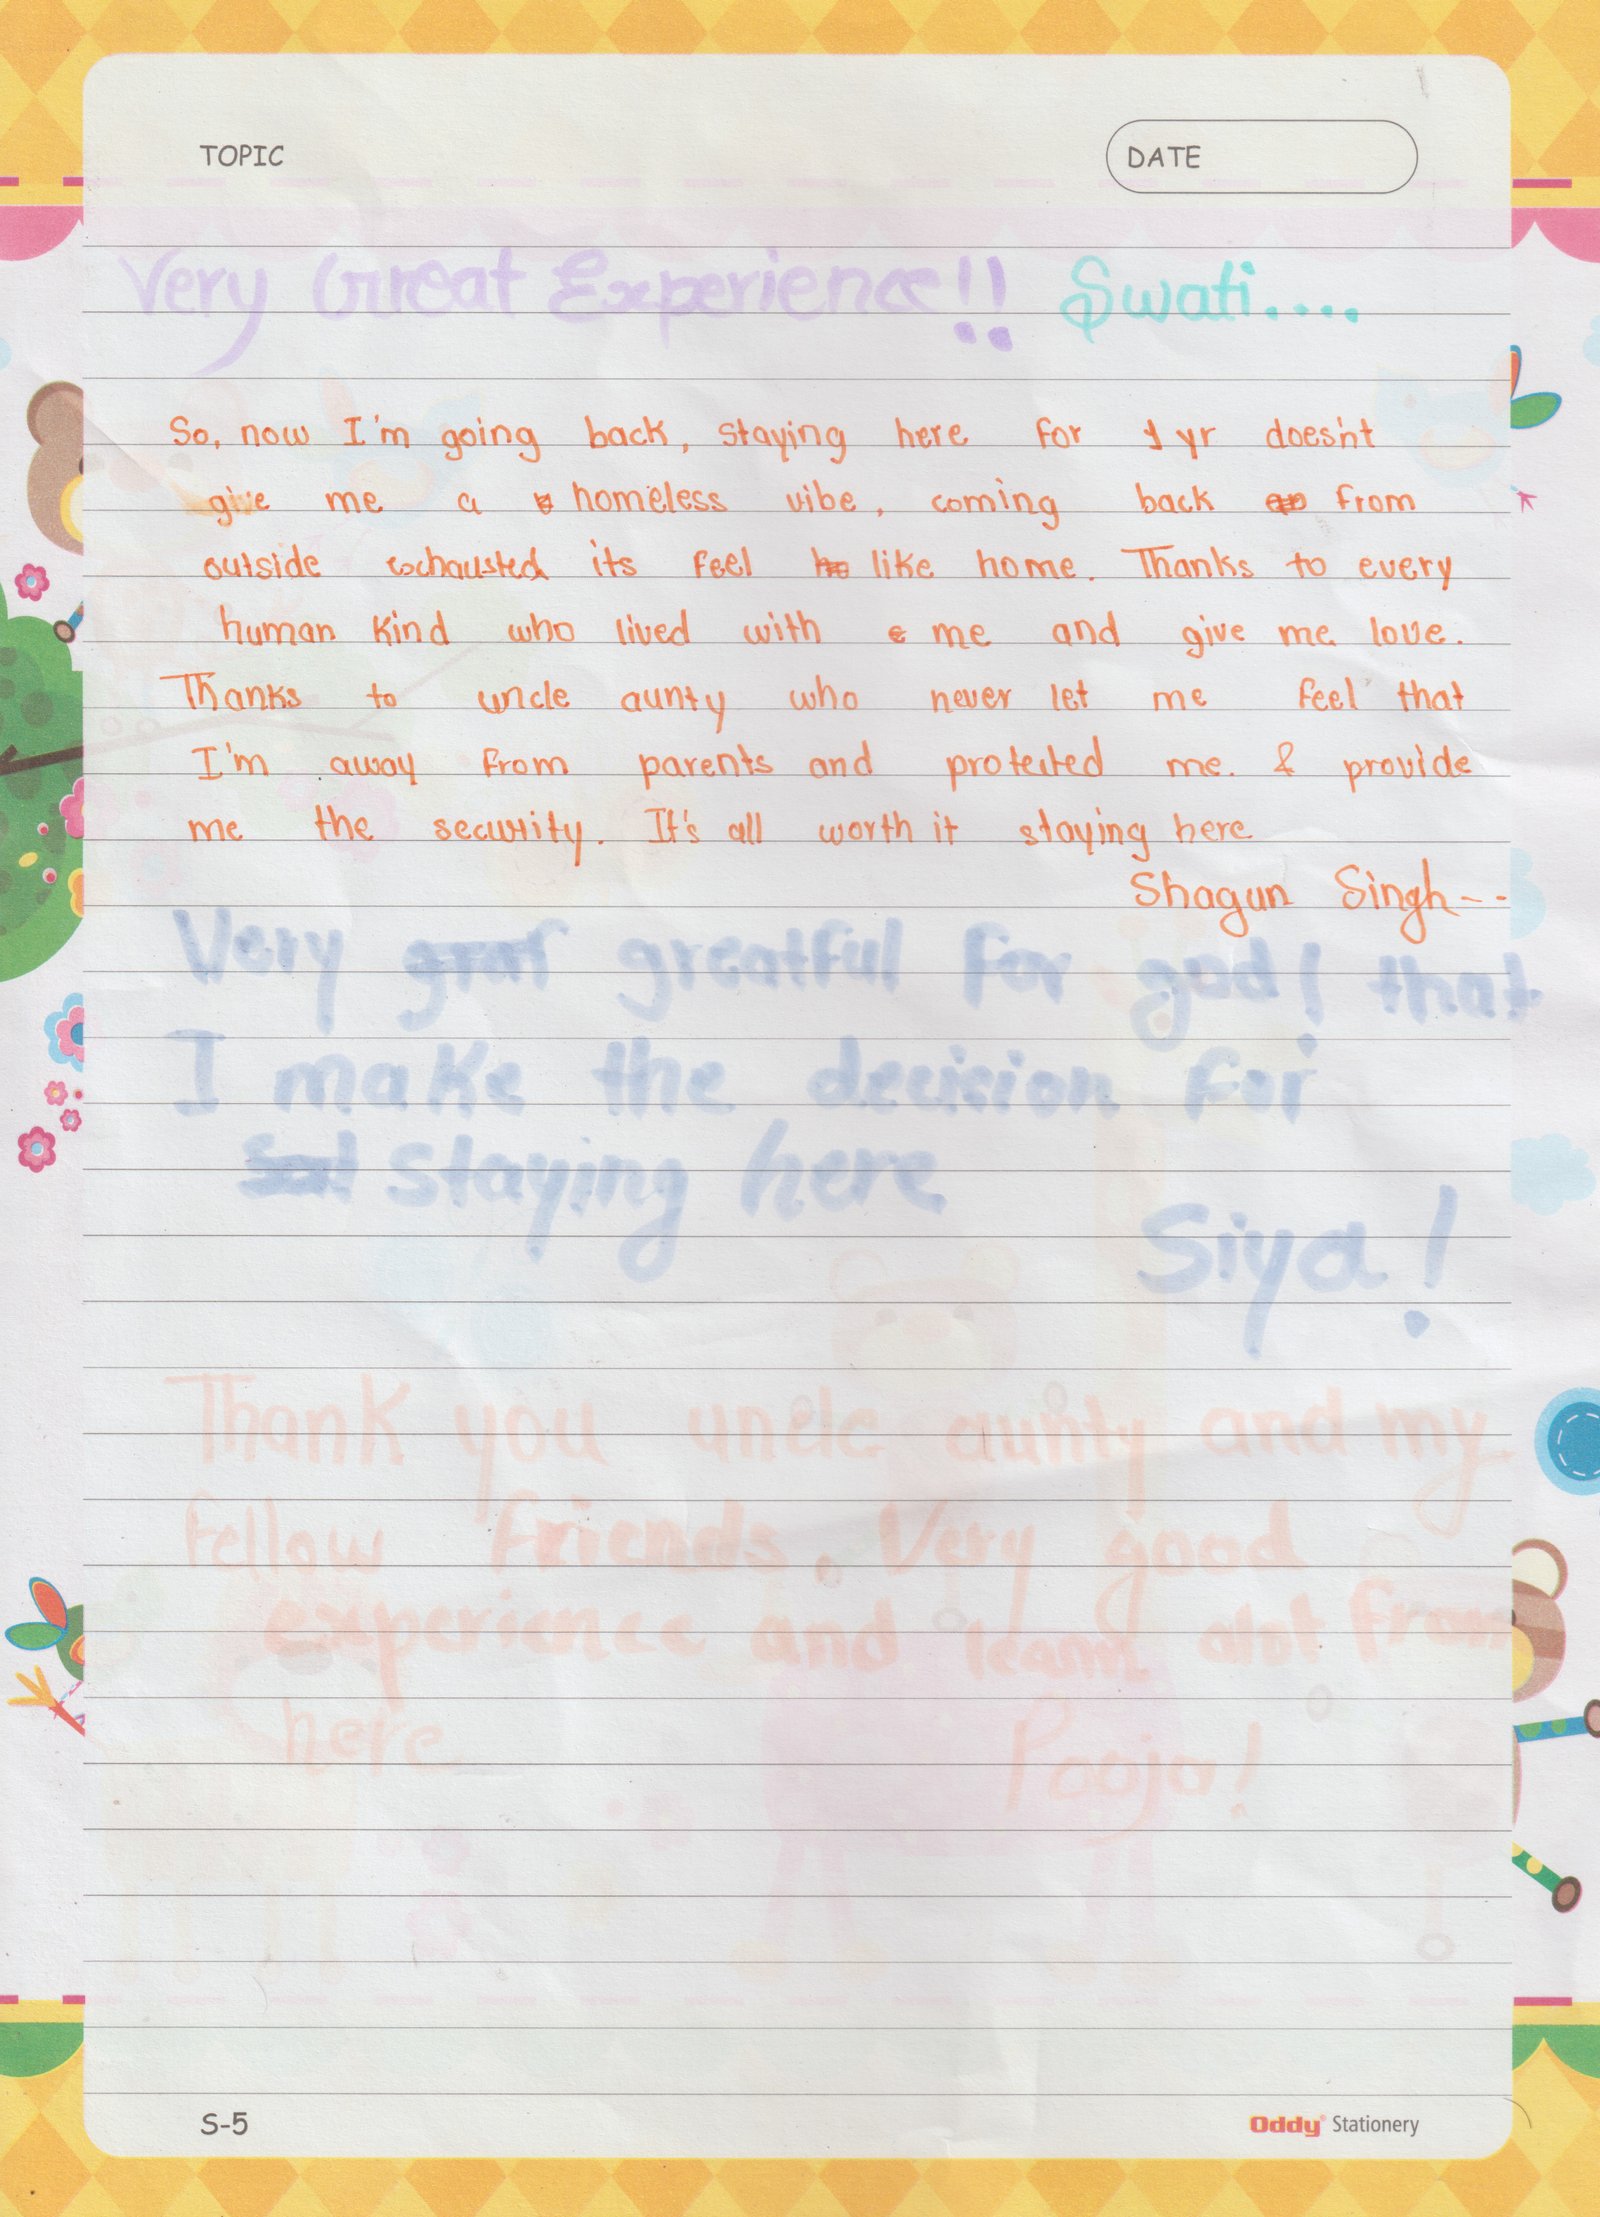 TOPIC
DATE
Very Great Experience!! Swati....
So, now I'm going back, staying here for 1 yr does'nt
give me a homeless vibe, coming back from
outside exhausted its feel like home. Thanks to every
human kind who lived with me and give me love.
Thanks to uncle aunty who never let me feel that
I'm away from parents and protected me. & provide
me the security. It's all worth it staying here
Shagun Singh--
Very greatful for god! that
I make the decision for
staying here
Siya!
Thank you uncle aunty and my
fellow friends. Very good
experience and learn alot from
here
Pooja!
S-5
Oddy Stationery